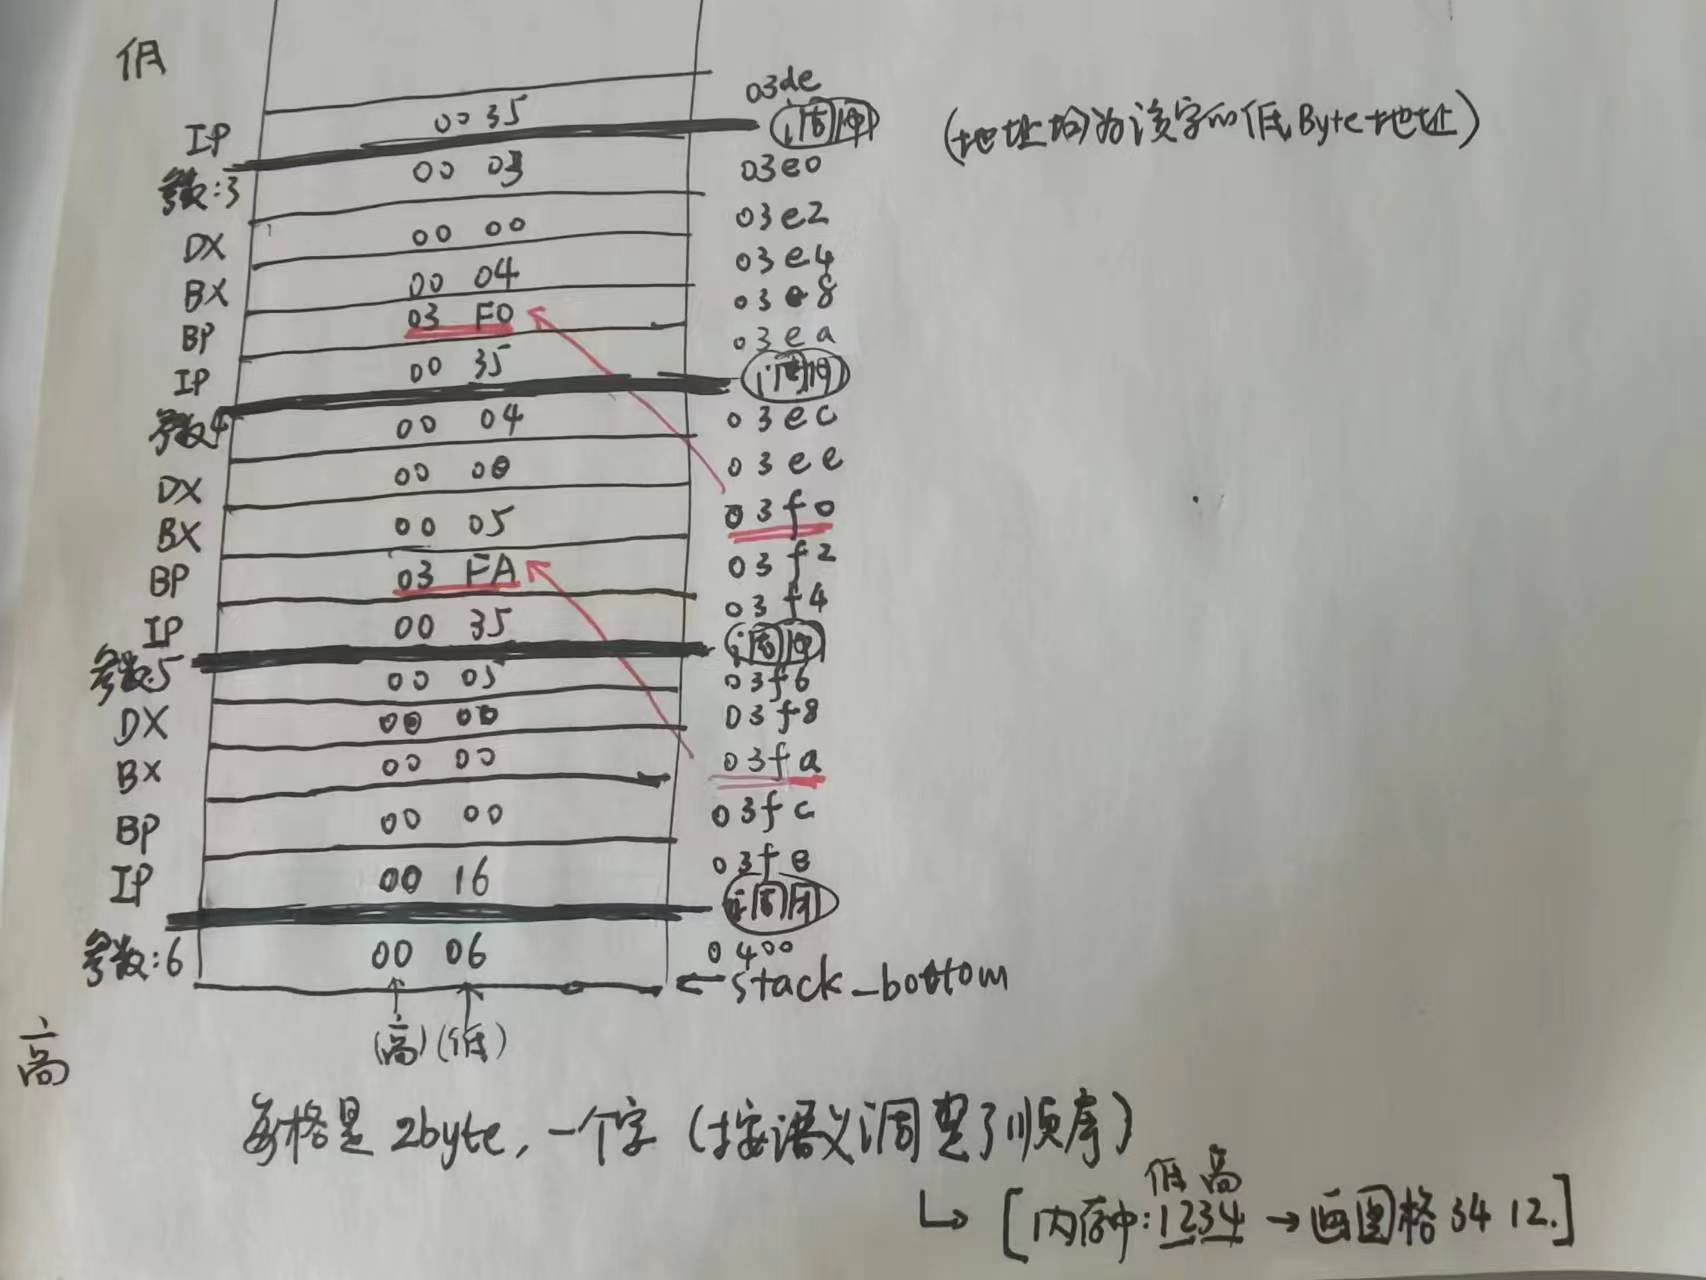 低
IP 00 35 03de
调用 (地址均为该字的低Byte地址)
参数:3 00 03 03e0
DX 00 00 03e2
BX 00 04 03e4
BP 03 F0 03e8
IP 00 35 03ea
调用
参数4 00 04 03ec
DX 00 00 03ee
BX 00 05 03f0
BP 03 FA 03f2
IP 00 35 03f4
调用
参数5 00 05 03f6
DX 00 00 03f8
BX 00 00 03fa
BP 00 00 03fc
IP 00 16 03fe
调用
参数:6 00 06 0400
←stack_bottom
高 (高)(低)
每格是 2byte, 一个字 (按语义调整了顺序)
低 高
↳ [内存中:1234 → 画图格 34 12.]